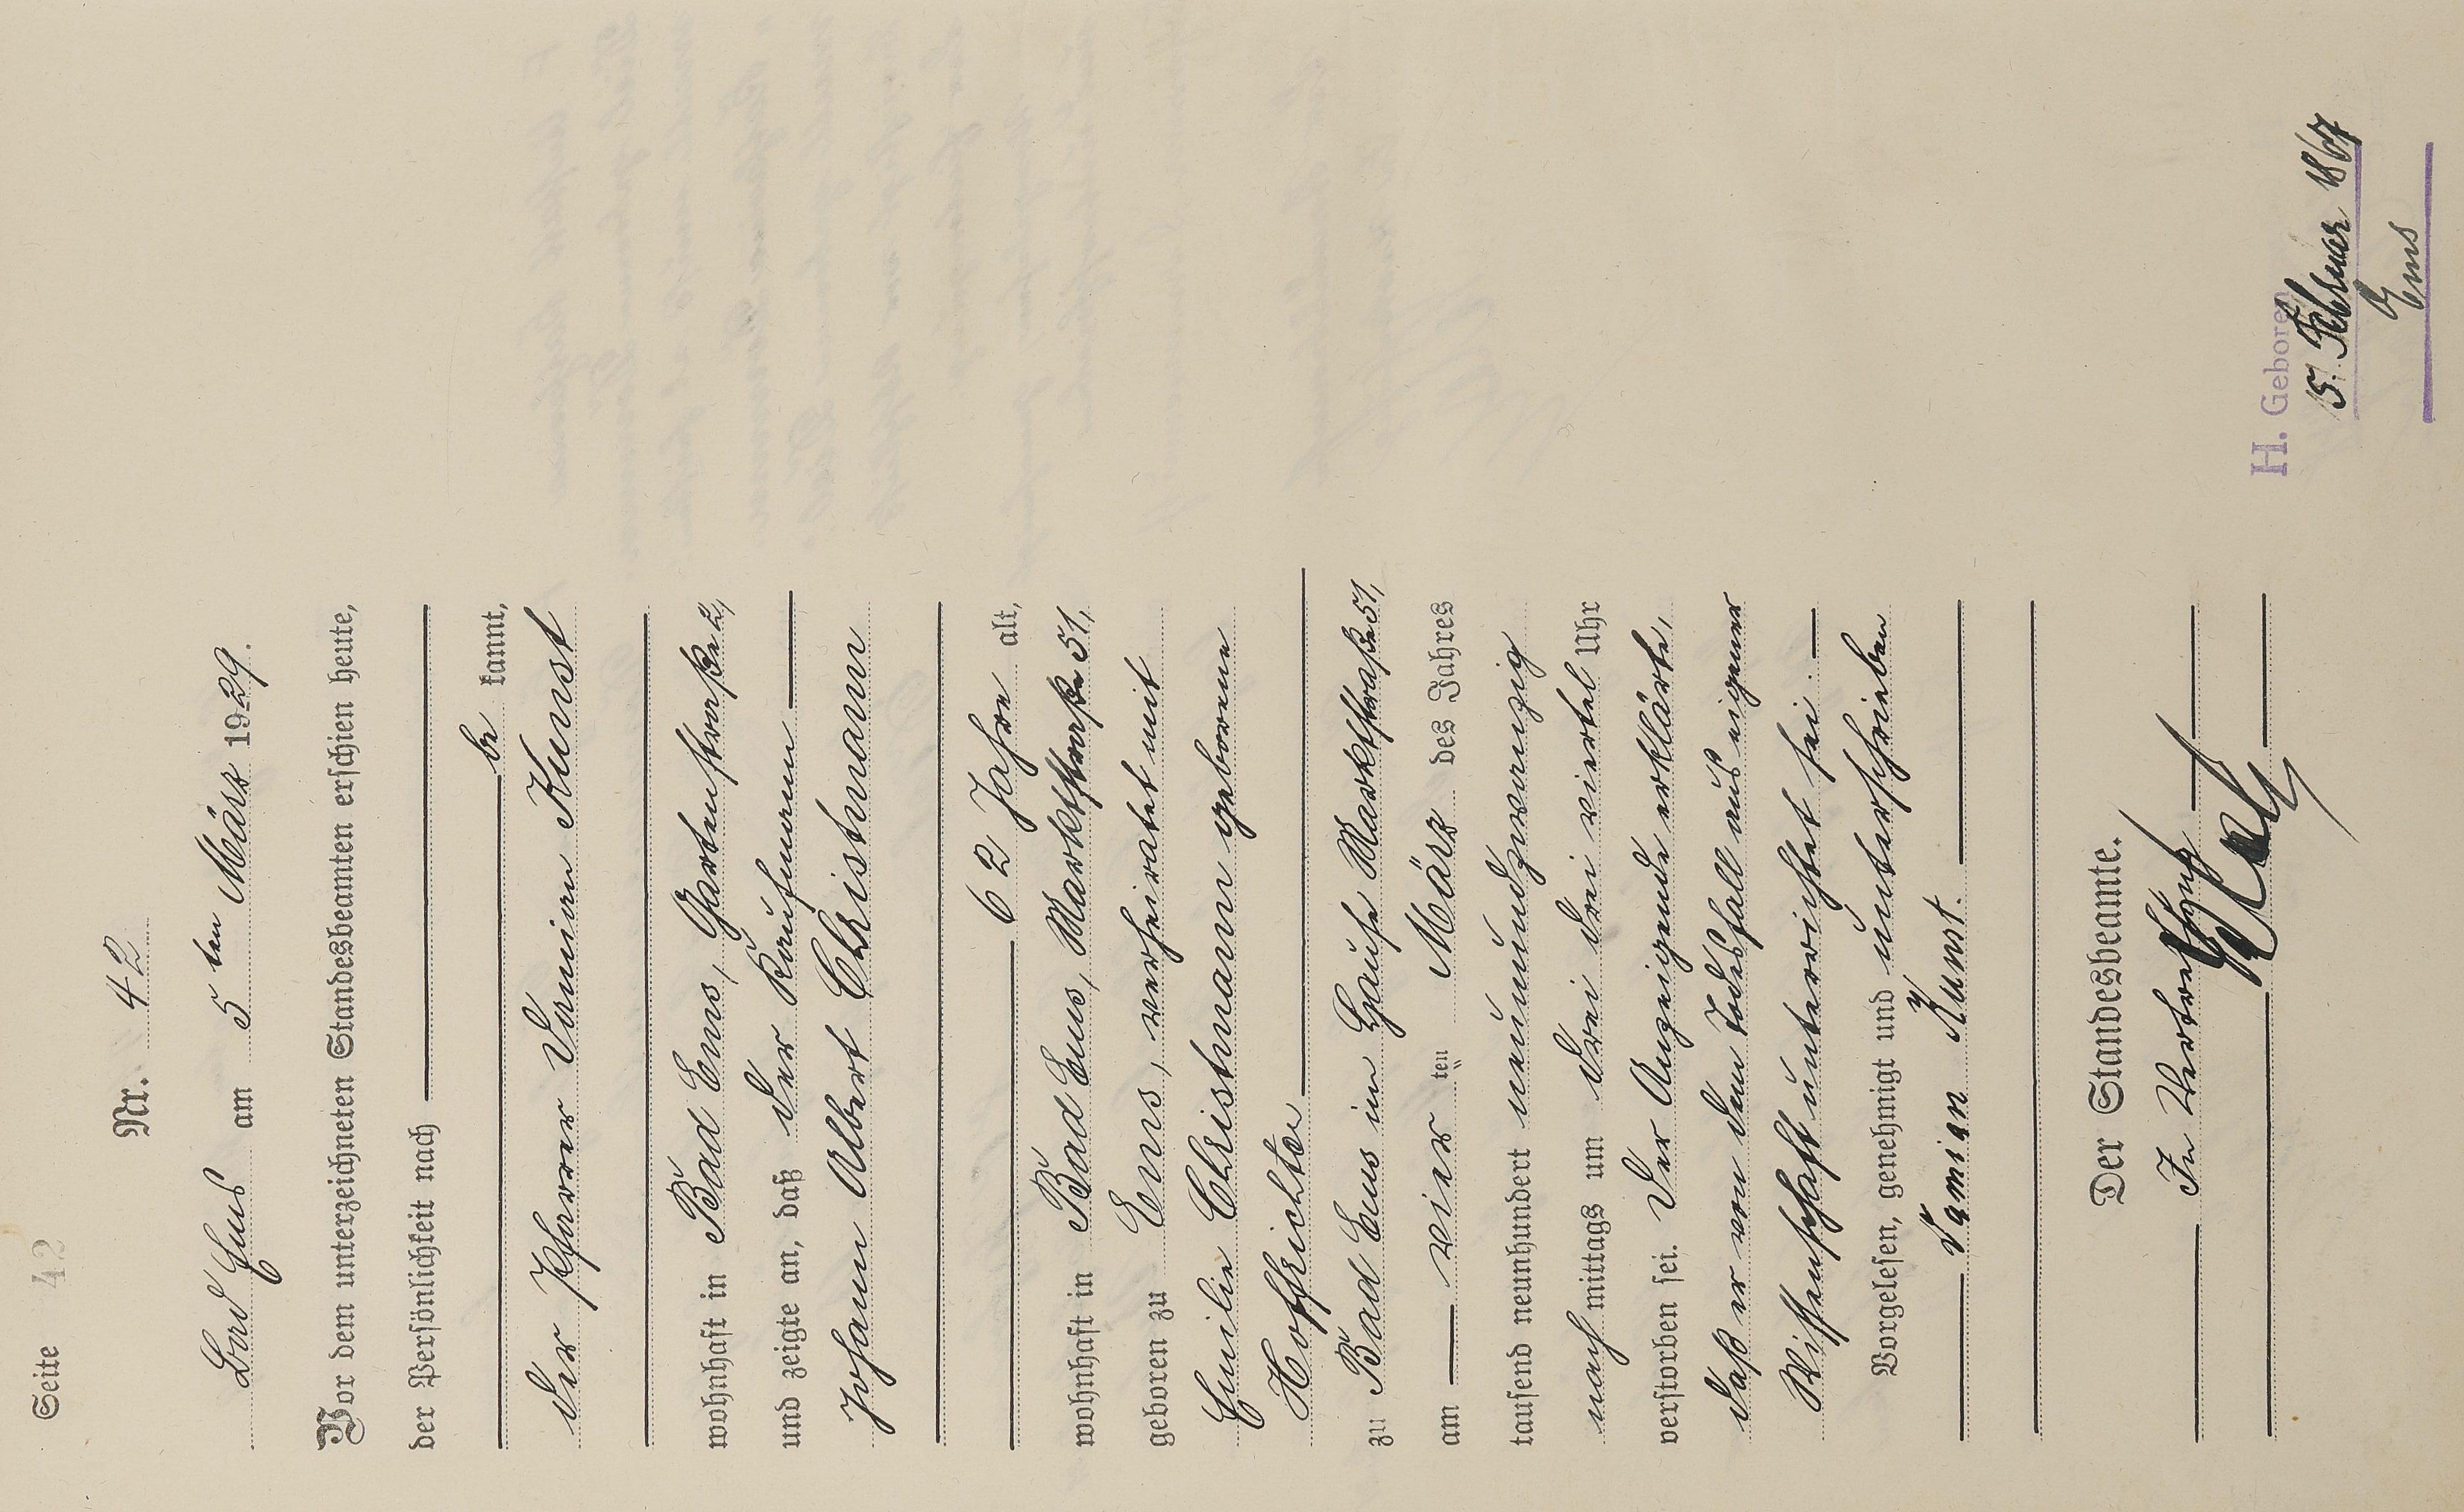 Seite 42
Nr. 42
Bad Ems am 5ten März 1929.
Vor dem unterzeichneten Standesbeamten erschien heute,
der Persönlichkeit nach
be kannt,
der Pfarrer Damian Kunst
wohnhaft in Bad Ems, Gartenstraße 2,
und zeigte an, daß der Kaufmann
Johann Albert Christmann
62 Jahre alt,
wohnhaft in Bad Ems, Marktstraße 51,
geboren zu Ems, verheiratet mit
Emilie Christmann geborene
Hoffrichter
zu Bad Ems im Hause Marktstraße 51,
am vier ten März des Jahres
tausend neunhundert neunundzwanzig
nach mittags um drei drei viertel Uhr
verstorben sei. Der Anzeigende erklärte,
daß er von dem Todesfall aus eigener
Wissenschaft unterrichtet sei.
Vorgelesen, genehmigt und unterschrieben
Damian Kunst.
Der Standesbeamte.
In Vertretung
H. Geboren
15. Februar 1867
Ems